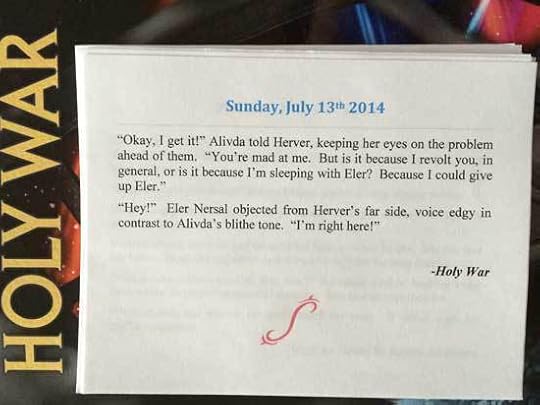 HOLY WAR
Sunday, July 13th 2014
“Okay, I get it!” Alivda told Herver, keeping her eyes on the problem
ahead of them.  “You’re mad at me.  But is it because I revolt you, in
general, or is it because I’m sleeping with Eler?  Because I could give
up Eler.”
“Hey!”  Eler Nersal objected from Herver’s far side, voice edgy in
contrast to Alivda’s blithe tone.  “I’m right here!”
-Holy War